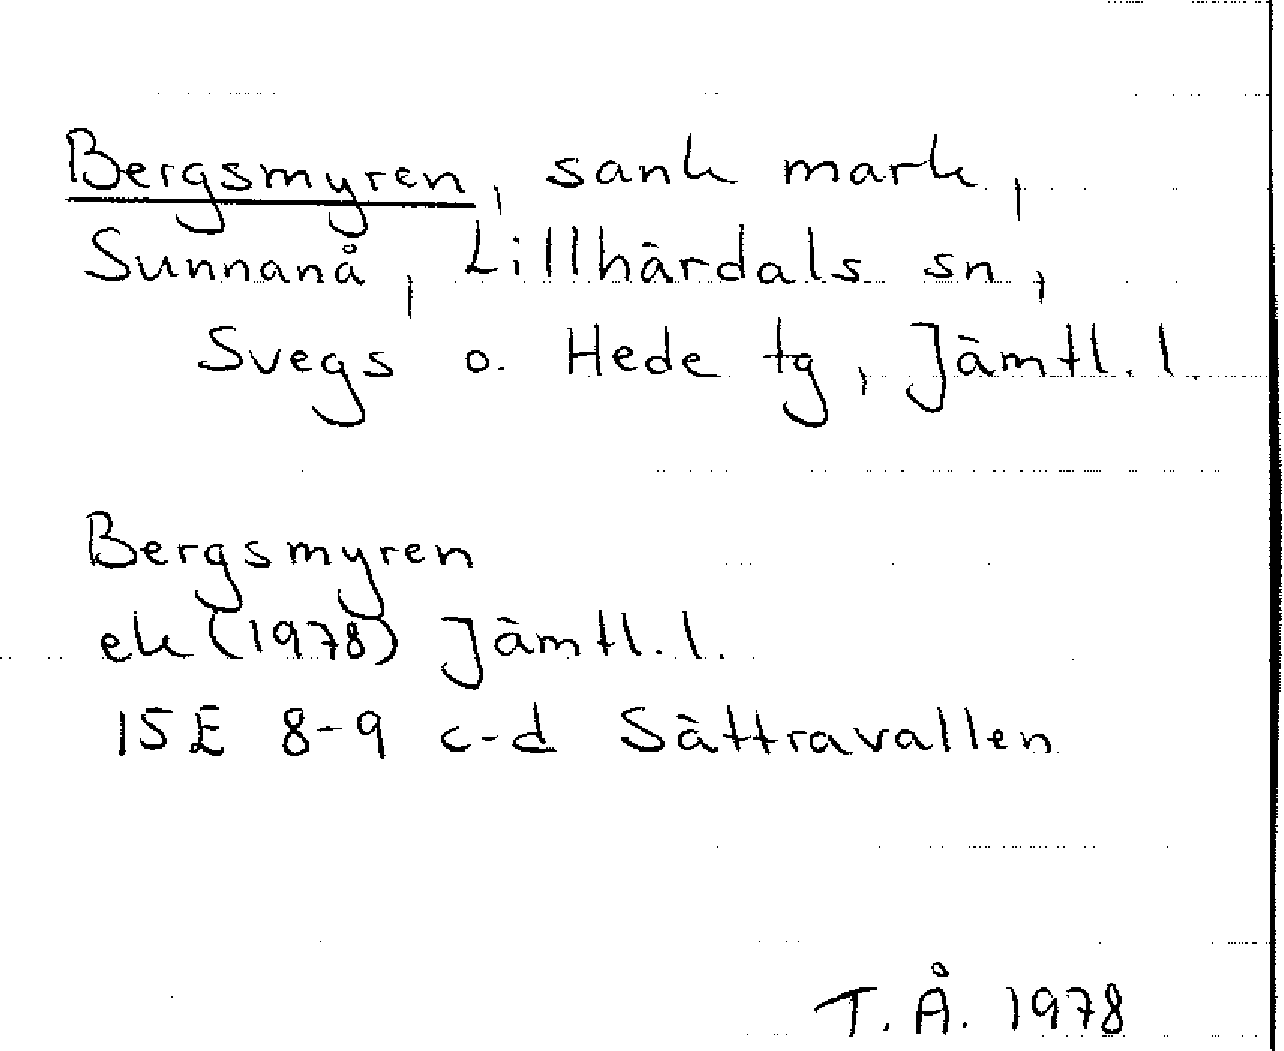 Bergsmyren, sank mark,
Sunnanå, Lillhärdals sn,
Svegs o. Hede tg, Jämtl. l.
Bergsmyren
ek (1978) Jämtl. l.
15E 8-9 c-d Sättravallen
T. Å. 1978